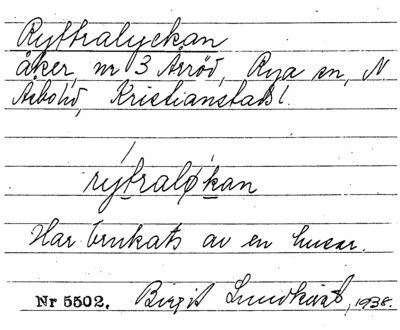 Ryttralyckan
åker, nr 3 Arröd, Rya sn, N
Åsbo hd, Kristianstads l.
rýtralø̨kan
Har brukats av en husar.
Nr 5502. Birgit Lundkvist, 1938.